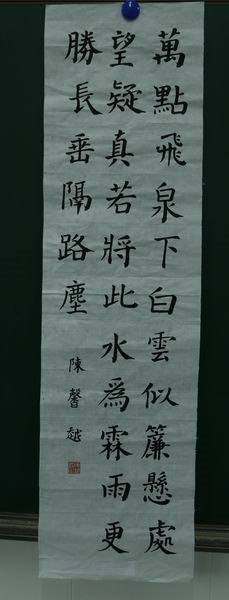 萬點飛泉下白雲似簾懸處
望疑真若將此水為霖雨更
勝長垂隔路塵
陳馨越